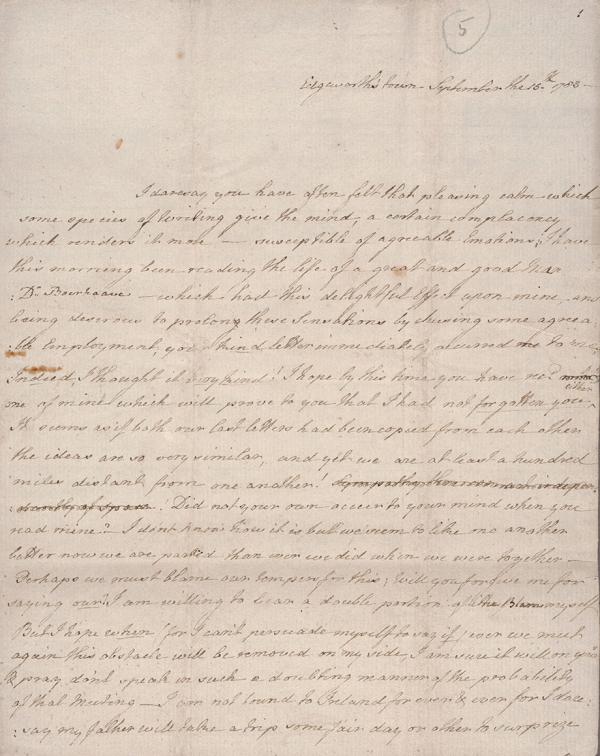 5
Edgeworth's town September the 15th 1783
I daresay you have often felt that pleasing calm which
some species of Writing give the mind, a certain complacency
which renders it more — susceptible of agreeable Emotions; I have
this morning been reading the life of a great and good Man
:Dr. Boerhaave — which had this delightful Effect upon mine, and
being desirous to prolong these Sensations by chusing some agreea-
:ble Employment, your kind letter immediately occurred me to me:
Indeed, I thought it very kind! I hope by this time you have rec'd
one of mine which will prove to you that I had not forgotten you —
It seems as if both our last letters had been copied from each other
the ideas are so very similar, and yet we are at least a hundred
miles distant from one another. Sympathy then
of space. Did not your own occur to your mind when you
read mine? — I don't know how it is but we seem to like one another
better now we are parted than ever we did when we were together —
Perhaps we must blame our tempers for this; Will you forgive me for
saying our? I am willing to bear a double portion of the Blame myself
But I hope when (for I can't persuade myself to say if) ever we meet
again this obstacle will be removed on my side, I am sure it will on your's
& pray don't speak in such a doubting manner of the probability
of that Meeting — I am not bound to Ireland for ever & ever for I dare
:say my father will take a trip some fair day or other to surprize